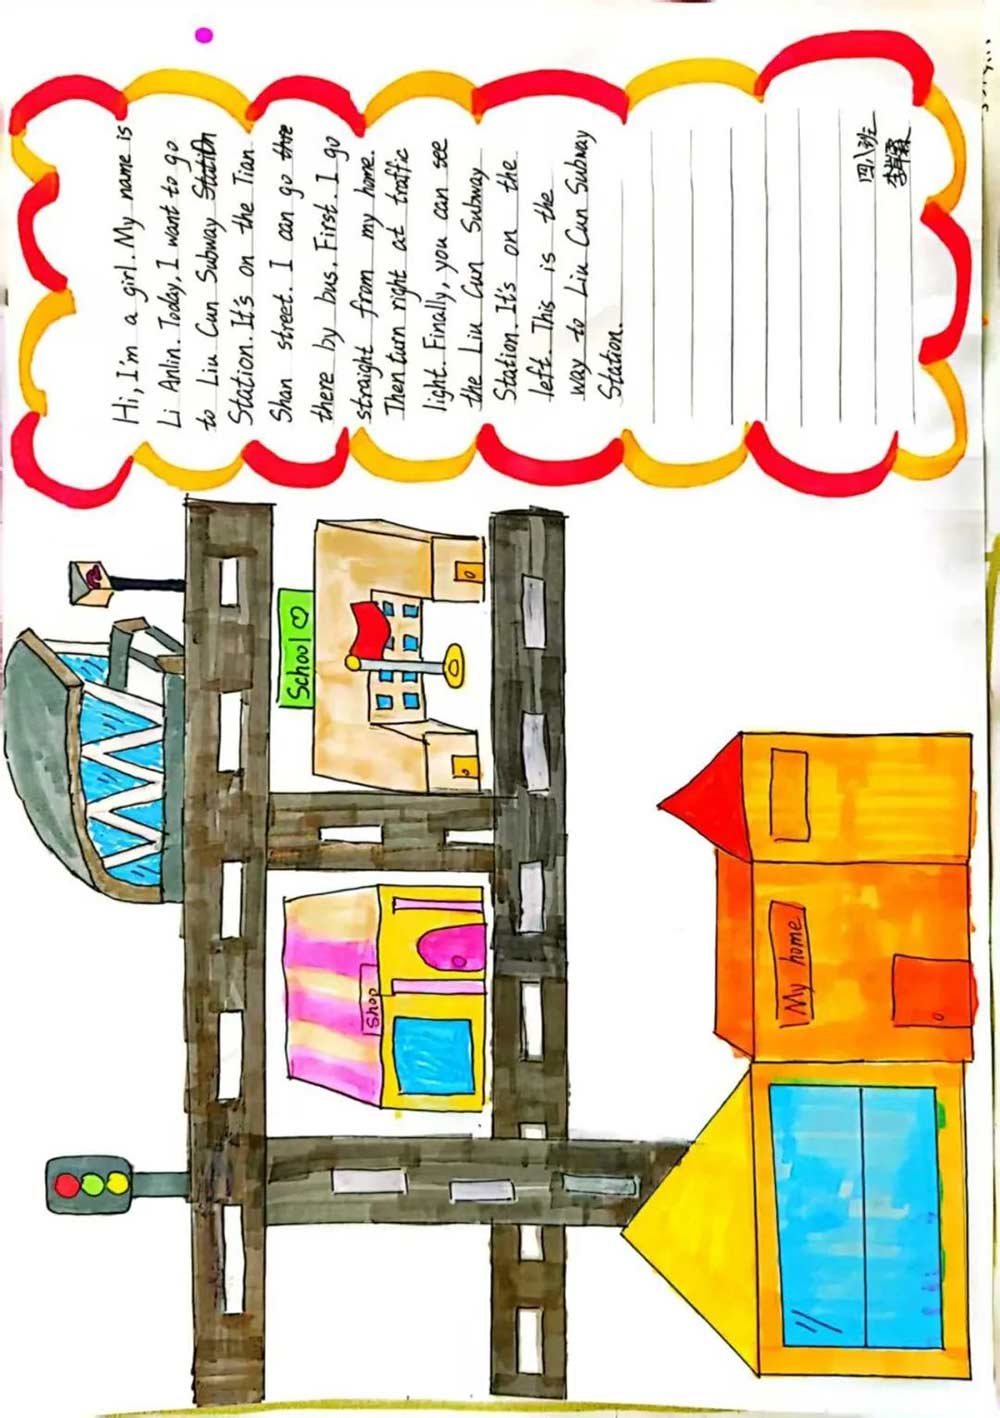 Hi, I'm a girl. My name is
Li Anlin. Today, I want to go
to Liu Cun Subway Station
Station. It's on the Tian
Shan street. I can go thre
there by bus. First. I go
straight from my home.
Then turn right at traffic
light. Finally, you can see
the Liu Cun Subway
Station. It's on the
left. This is the
way to Liu Cun Subway
Station.
四八班
李岸霖
School♡
Shop
My home